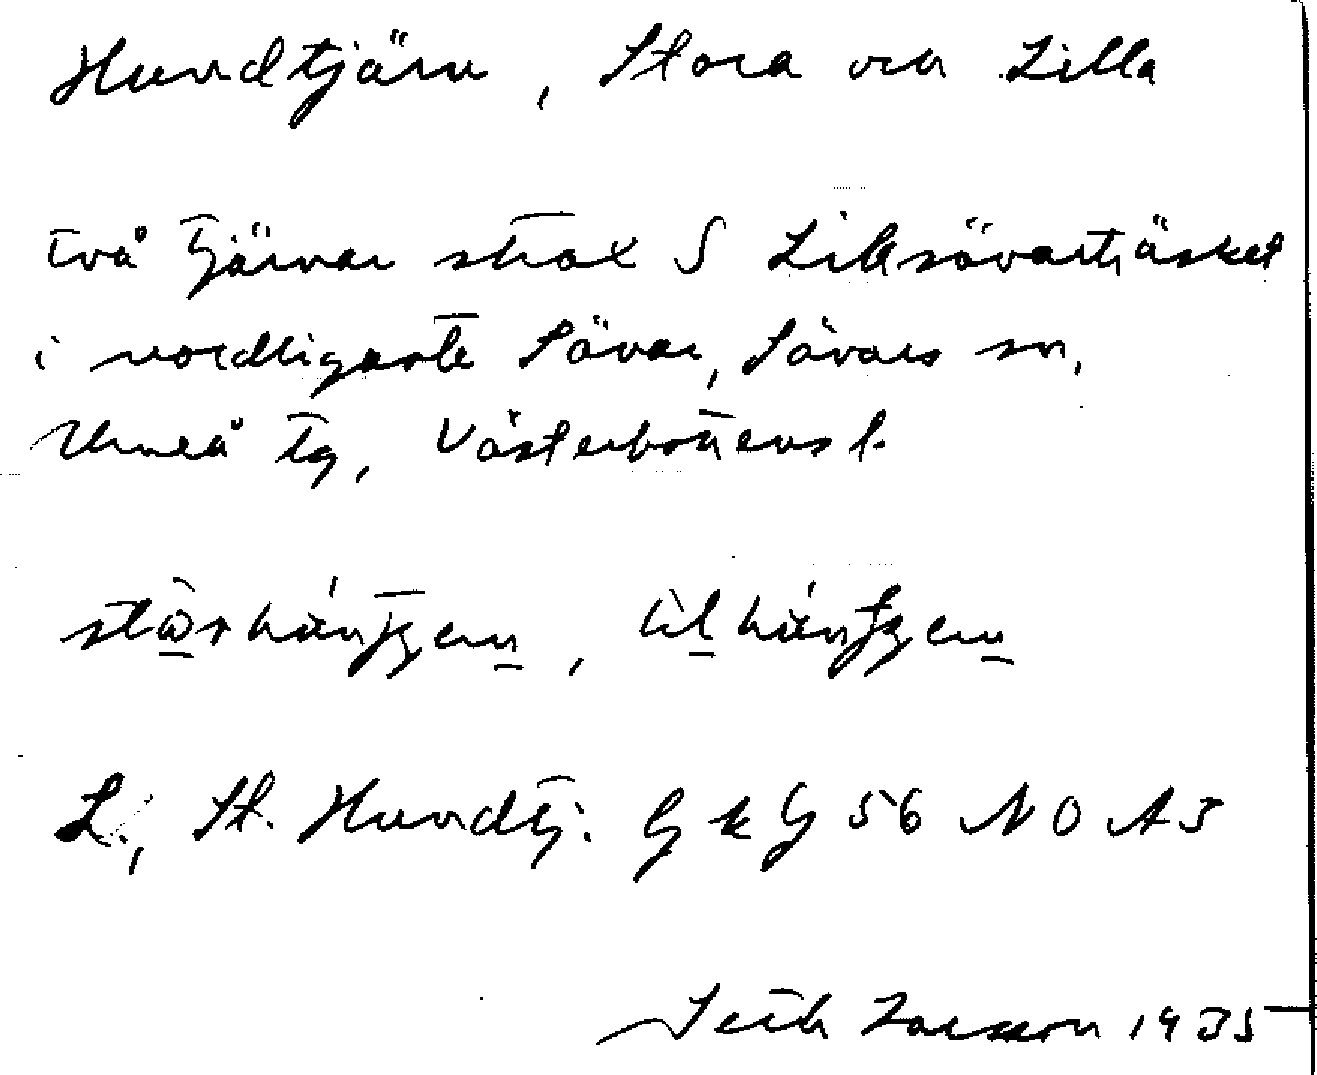 Hundtjärn, Stora och Lilla
två tjärnar strax S Lillsävarträsket
i nordligaste Sävar, Sävars sn,
Umeå tg, Västerbottens l.
L., St. Hundtj. GkG 56 NO A5
Seth Larsson 1935